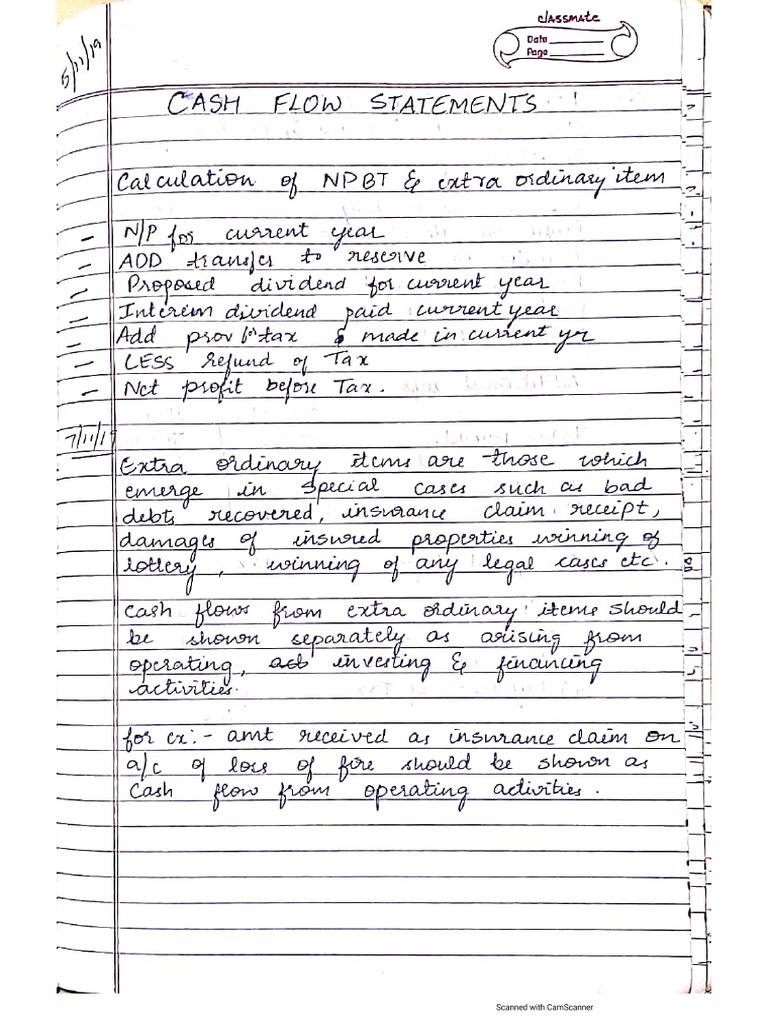 classmate
Date
Page
5/11/19
CASH FLOW STATEMENTS
Calculation of NPBT & extra ordinary item
- N/P for current year
- ADD transfer to reserve
- Proposed dividend for current year
- Interim dividend paid current year
- Add prov for tax & made in current yr
- LESS refund of Tax
- Net profit before Tax.
7/11/19
Extra ordinary items are those which
emerge in special cases such as bad
debts recovered, insurance claim receipt,
damages of insured properties winning of
lottery, winning of any legal cases etc.
Cash flows from extra ordinary items should
be shown separately as arising from
operating, investing & financing
activities.
for ex:- amt received as insurance claim on
a/c of loss of fire should be shown as
Cash flow from operating activities.
Scanned with CamScanner